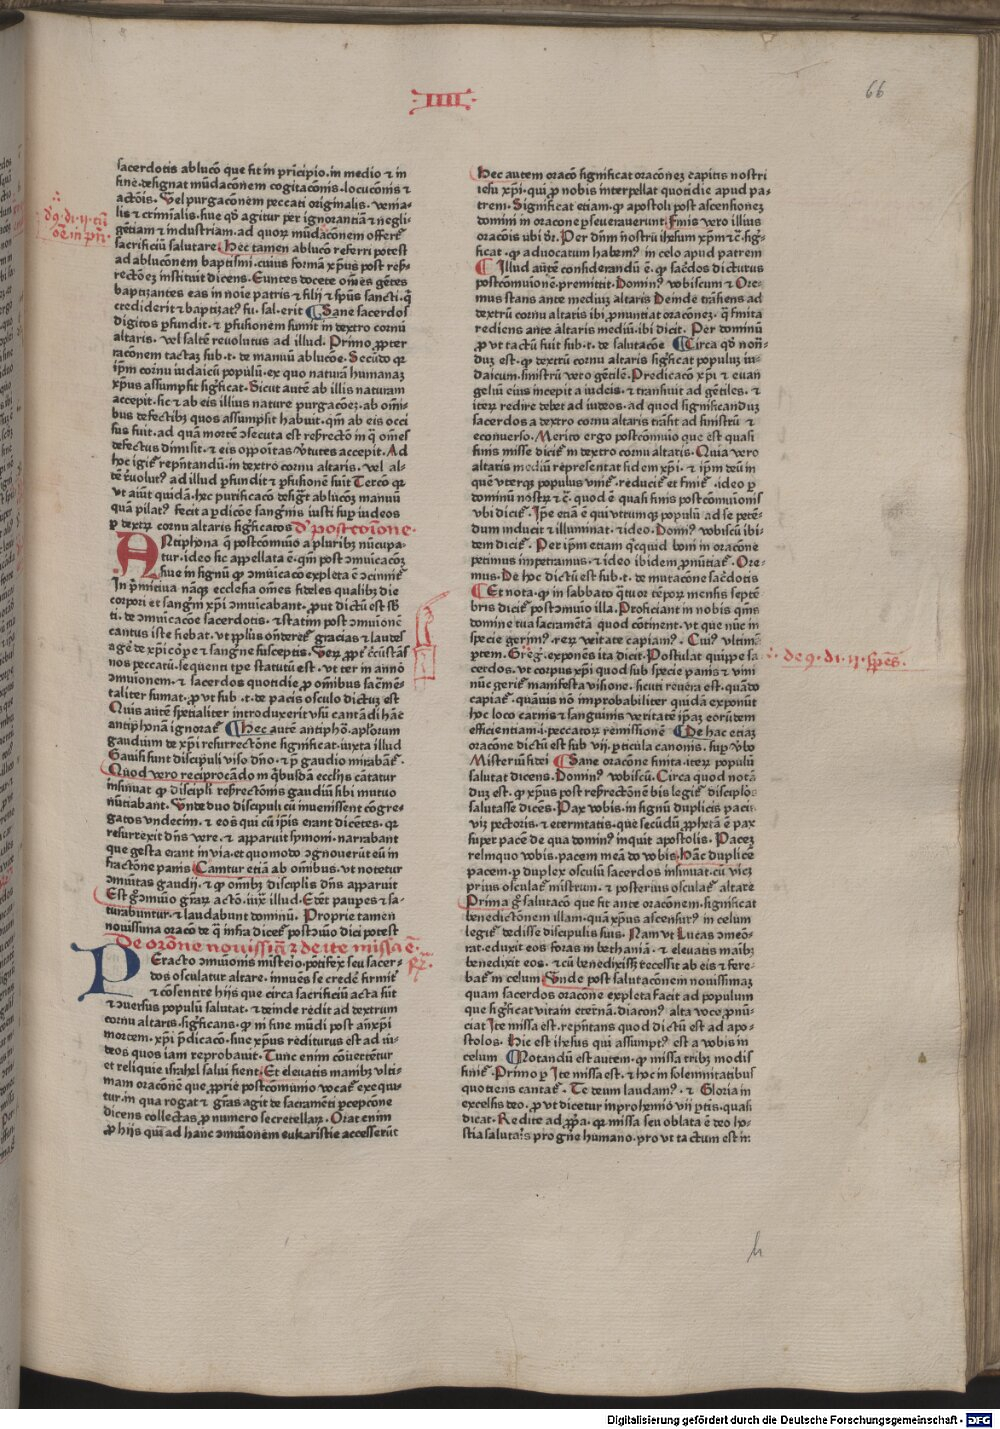 IIII
66
sacerdotis ablucō que fit in pricipio.in medio ⁊ in
fine.designat mūdacōnem cogitacōnis.locucōnis ⁊
actōis. Uel purgaconem peccati originalis. venia-
lis ⁊ criminalis.siue qd̄ agitur per ignorantiā ⁊ negli-
gētiam ⁊ industriam.ad quorum mūdacōnem offert̄
sacrificiū salutare. Hec tamen ablucō referri potest
ad ablucōnem baptismi.cuius formā xp̄us post resur-
rectōez instituit dicens. Euntes docete om̄es gētes
baptizantes eas in noīe patris ⁊ filij ⁊ sp̄us sancti. q̄
crediderit ⁊ baptizatꝰ fu. sal. erit Sane sacerdos
digitos ꝑfundit. ⁊ ꝑfusionem sumit in dextro cornu
altaris. vel saltē reuolutus ad illud. Primo ꝓpter
racōnem tactaz sub.t. de manuū ablucōe. Secūdo qꝛ
ip̄m cornu iudaicū populū. ex quo naturā humanaz
xp̄us assumpsit significat. Sicut autē ab illis naturam
accepit. sic ⁊ ab eis illius nature purgacōez. ab om̄i-
bus defectibus quos assumpsit habuit. qm̄ ab eis occi
sus fuit. ad quā mortē ɔsecuta est resurrectō in q̄ om̄es
defectus dimisit. ⁊ eis oppositas v̄tutes accepit. Ad
ad illud ꝑfundit ⁊ ꝑfusionē sumit Tercō qꝛ
vt aiūt quidā. hec purificacō designat ablucōez manuū
quā pilatꝰ fecit a ꝑdicōe sanguinis iusti super iudeos
ꝑ dextrum cornu altaris significatos d' postcōione.
Antiphona q̄ postcōmunio a pluribus nūcupa-
tur. ideo sic appellata ē. qm̄ post ɔmūicacōez
siue in signū ꝙ ɔmūicacō expleta ē ɔcinitur
In primitiua nāqꝫ ecclesia om̄es fideles qualibꝫ die
corpori et sanguini xp̄i ɔmūicabant. ꝓut dictū est sub
ti. de ɔmūicacōe sacerdotis. ⁊ statim post ɔmūionē
cantus iste fiebat. vt populus onderet̄ gracias ⁊ laudes
agē de xp̄i corpore ⁊ sanguine susceptis.
nos peccatū. sequenti tp̄e statutū est. vt ter in anno
ɔmūionem. ⁊ sacerdos quotidie ꝓ omnibus sacramē-
taliter sumat. ꝓ vt sub .t. de pacis osculo dictuz est
Quis autē spetialiter introduxerit vsū cantādi hāc
antiphonā ignorat̄ Hec autē antiphō. aplorum
gaudium de xp̄i resurrectōne significat. iuxta illud
Gauisi sunt discipuli viso dn̄o. ⁊ p̄ gaudio mirabāt̄.
Quod vero reciprocādo in quibusdā ecclesijs cātatur
insinuat ꝙ discipuli resurrectōnis gaudiū sibi mutuo
nūciabant. Unde duo discipuli cū inuenissent cōgre-
gatos vndecim. ⁊ eos qui cū ip̄is erant dicētes. qꝛ
resurrexit dn̄s vere. ⁊ apparuit symoni. narrabant
que gesta erant in via. et quomodo ɔgnouerūt eū in
fractōne panis Canitur etiā ab omnibus. vt notetur
ɔmūitas gaudij. ⁊ ꝙ omnibꝫ discipulis dn̄s apparuit
Est gͦ ɔmūio graꝝ actō. iuxta illud. Edēt pauꝑes ⁊ sa-
turabuntur. ⁊ laudabunt dominū. Proprie tamen
nouissima oracō de q̄ infra dicet̄ postɔmūio dici potest
De orōne nouissiā ⁊ de ite missa ē. R'.
Peracto ɔmūionis misterio. pōtifex seu sacer-
dos osculatur altare. innuēs se credē firmit̄
⁊ cōsentire hijs que circa sacrificiū acta sūt
⁊ ɔuersus populū salutat. ⁊ deinde redit ad dextrum
cornu altaris. significans. ꝙ in fine mūdi post antixpi
mortem. xp̄i ꝑdicacō. siue xp̄us rediturus est ad iu-
deos quos iam reprobauit. Tunc enim cōuertētur
et reliquie israhel salui fient. Et eleuatis manibꝫ vlti-
mam oracōnē que ꝓprie postcōmunio vocat̄ exequi-
tur. in qua rogat ⁊ gr̄as agit de sacramēti ꝑcepcōne
dicens collectas. ꝓ numero secretellaꝝ. Orat enim
ꝓ hijs qui ad hanc ɔmūionem eukaristie accesserūt
Hec autem oracō significat oracōnez capitis nostri
iesu xp̄i. qui ꝓ nobis interpellat quotidie apud pa-
trem. Significat etiam. ꝙ apostoli post ascensionez
domini in oracone ꝑseuerauerunt. Finis vero illius
oracōis vbi dr̄. Per dn̄m nostrū ihesum xp̄m ⁊c̄. sig-
ficat. ꝙ aduocatum habemꝰ in celo apud patrem
Illud autē considerandū ē. ꝙ sacerdos dicturus
postcōmunionē. premittit. Dominꝰ vobiscum ⁊ Ore-
mus stans ante mediuz altaris Deinde trāsiens ad
dextrū cornu altaris ibi ꝓnuntiat oracōnez. q̄ finita
rediens ante altaris mediū. ibi dicit. Per dominū
ꝓ vt tactū fuit sub.t. de salutacōe Circa qd̄ notan-
duz est. ꝙ dextrū cornu altaris significat populuz iu-
daicum. sinistrū vero gētilē. Predicacō xp̄i ⁊ euan
geliū eius incepit a iudeis. ⁊ transiuit ad gētiles. ⁊
iterum redire debet ad iudeos. ad quod significanduz
sacerdos a dextro cornu altaris trāsit ad sinistrū ⁊
econuerso. Merito ergo postcōmunio que est quasi
finis misse dicit̄ in dextro cornu altaris. Quia vero
altaris mediū representat fidem xp̄i. ⁊ ip̄m deū in
quē vterqꝫ populus vnit̄. reducit̄ et finit̄. ideo ꝑ
dominū nostrum ⁊c̄. quod ē quasi finis postcōmūionis
vbi dicit̄. Ip̄e etiā ē qui vtrumqꝫ populū ad se petē-
dum inducit ⁊ illuminat. ⁊ ideo. Dominꝰ vobiscū ibi-
dem dicit̄. Per ip̄m etiam quicquid boni in oracōne
petimus impetramus. ⁊ ideo ibidem ꝓnūtiat̄. Ore-
mus. De hoc dictū est sub.t. de mutacōne sacerdotis
Et nota. ꝙ in sabbato quatuor tēporum mensis septē
bris dicit̄ postɔmūio illa. Proficiant in nobis quesumus
domine tua sacramētā quod cōtinent. vt que nūc in
specie gerimꝰ. rerum veritate capiamꝰ. Cuiꝰ vltimā
ꝑtem. Greg̅. exponēs ita dicit. Postulat quippe sa
cerdos. vt corpus xp̄i quod sub specie panis ⁊ vini
nūc gerit̄ manifesta visione. sicuti reuera est. quādo
capiat̄. quāuis nō improbabiliter quidā exponūt
hoc loco carnis ⁊ sanguinis veritatē ip̄az eorūdem
efficientiam. i. peccatorum remissionē De hac etiaz
oracōne dictū est sub vij. ꝑticula canonis. super v̄bo
Misteriū fidei Sane oracōne finita. iterum populū
salutat dicens. Dominꝰ vobiscū. Circa quod notā
duz est. ꝙ xp̄us post resurrectōnē bis legit̄ discipulos
salutasse dicēs. Pax vobis. in signū duplicis pacis
viz pectoris. ⁊ eternitatis. que secūdū ꝓphetā ē pax
super pacē de qua dominꝰ inquit apostolis. Pacez
relinquo vobis. pacem meā do vobis. Hāc duplicē
pacem. ꝑ duplex osculū sacerdos insinuat. cū vicz
prius osculat̄ ministrum. ⁊ posterius osculat̄ altare
Prima gͦ salutacō que fit ante oracōnem. significat
benedictōnem illam. quā xp̄us ascensurꝰ in celum
legit̄ dedisse discipulis suis. Nam vt Lucas ɔmemo-
rat. eduxit eos foras in bethaniā. ⁊ eleuatis manibꝫ
benedixit eos. ⁊ cū benedixisset recessit ab eis ⁊ fere-
bat̄ in celum Unde post salutacōnem nouissimaz
quam sacerdos oracōne expleta facit ad populum
que significat vitam eternā. diaconꝰ alta voce ꝓnū-
ciat Ite missa est. represētans quod dictū est ad apo-
stolos. Hic est ihesus qui assumptꝰ est a vobis in
celum Notandū est autem. ꝙ missa tribꝫ modis
finit̄. Primo ꝑ Ite missa est. ⁊ hoc in solemnitatibus
quotiens cantat̄. Te deum laudamꝰ. ⁊ Gloria in
excelsis deo. ꝓ vt dicetur in prohemio vij ꝑtis. quasi
dicat. Redite ad ꝓpria. qꝛ missa seu oblata ē deo ho-
stia salutaris pro gn̄e humano. pro vt tactum est in
h
Digitalisierung gefördert durch die Deutsche Forschungsgemeinschaft - DFG